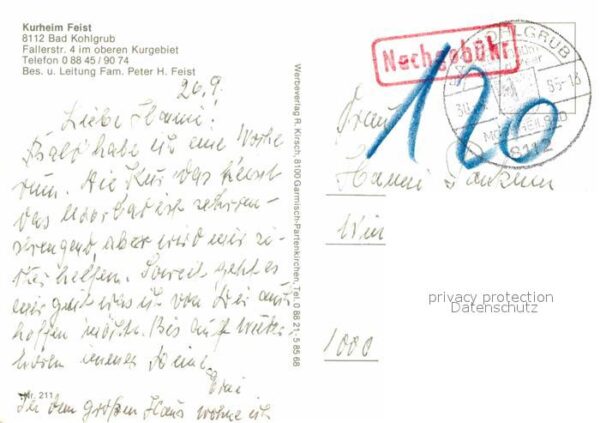 Kurheim Feist
8112 Bad Kohlgrub
Fallerstr. 4 im oberen Kurgebiet
Telefon 0 88 45 / 90 74
Bes. u. Leitung Fam. Peter H. Feist
26.9.
Liebe Hanni!
Bald habe ich eine Woche
rum. Die Kur, das heisst
das Moorbad ist sehr an-
strengend, aber wird mir si-
cher helfen. Soweit geht es
mir gut was ich von Dir auch
hoffen möchte. Bis auf Wieder-
hören immer Deine
Nr. 211
In dem großen Haus wohne ich
Werbeverlag R. Kirsch, 8100 Garmisch-Partenkirchen, Tel. 0 88 21 - 5 85 68
Nachgebühr
120
KOHLGRUB
8112
Frau
Hanni
1000
privacy protection
Datenschutz